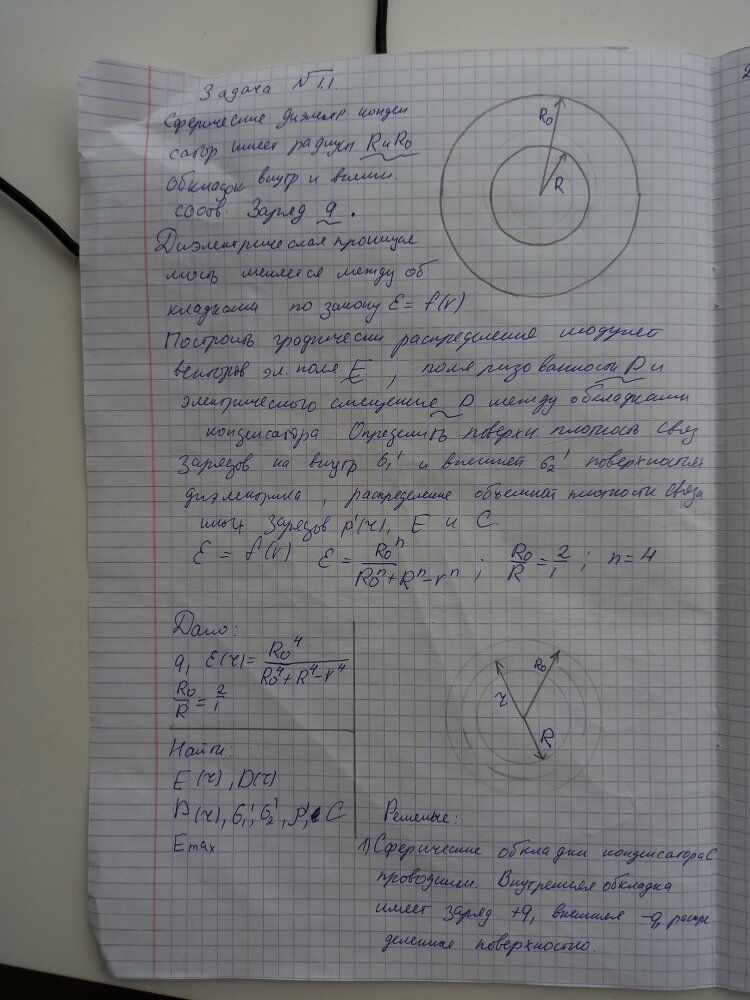 Задача №1.1.
Сферические диэлектр конден
сатор имеет радиусы R и R₀
обкладок внутр и внешн.
соотв. Заряд q.
Диэлектрическая проницае
мость меняется между об
кладками по закону ε = f(r)
Построить графически распределения модулей
векторов эл. поля E, поляризованности P и
электрического смещение D между обкладками
конденсатора. Определить поверхн плотность связ
зарядов на внутр σ₁' и внешней σ₂' поверхностях
диэлектрика, распределение объемной плотности связа
нных зарядов ρ'(r), E и C
ε = f(r) ε = R₀ⁿ / (R₀ⁿ + Rⁿ - rⁿ) ; R₀/R = 2/1 ; n = 4
R₀
R
Дано:
q, ε(r) = R₀⁴ / (R₀⁴ + R⁴ - r⁴)
R₀/R = 2/1
Найти:
E(r), D(r)
P(r), σ₁', σ₂', ρ', C
Emax
r
R₀
R
Решение:
1) Сферические обкладки конденсатора с
проводники. Внутренняя обкладка
имеет заряд +q, внешняя -q, распре
деленные поверхностно.